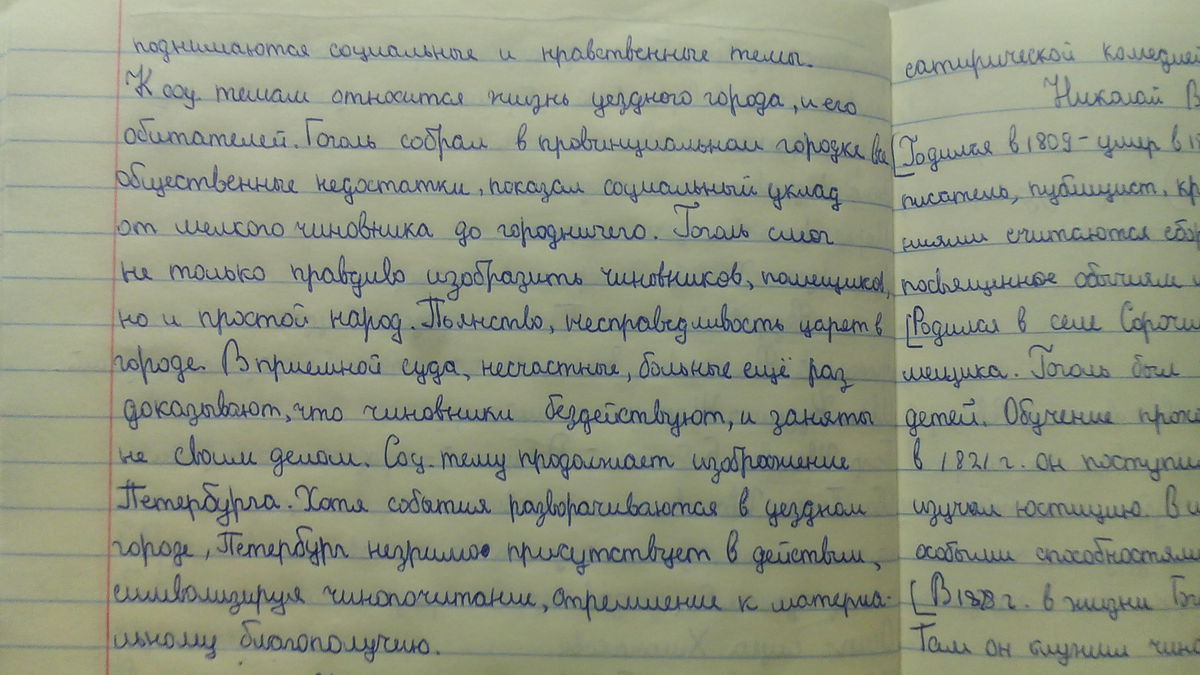 поднимаются социальные и нравственные темы.
К соц. темам относится жизнь уездного города, и его
обитателей. Гоголь собрал в провинциальном городке все
общественные недостатки, показал социальный уклад
от мелкого чиновника до городничего. Гоголь смог
не только правдиво изобразить чиновников, помещиков,
но и простой народ. Пьянство, несправедливость царет в
городе. В приемной суда, несчастные, больные ещё раз
доказывают, что чиновники бездействуют, и заняты
не своим делом. Соц. тему продолжает изображение
Петербурга. Хотя события разворачиваются в уездном
городе, Петербург незримо присутствует в действии,
символизируя чинопочитание, стремление к материа-
льному благополучию.
сатирической комедией
Николай В
[Родился в 1809 - умер в 1
писатель, публицист, кр
ниями считаются сбор
посвященное обычаям
[Родился в селе Сорочи
мещика. Гоголь был
детей. Обучение прои
в 1821 г. он поступи
изучал юстицию. В
особыми способностями
[В 1828 г. в жизни Гог
Там он служил чино